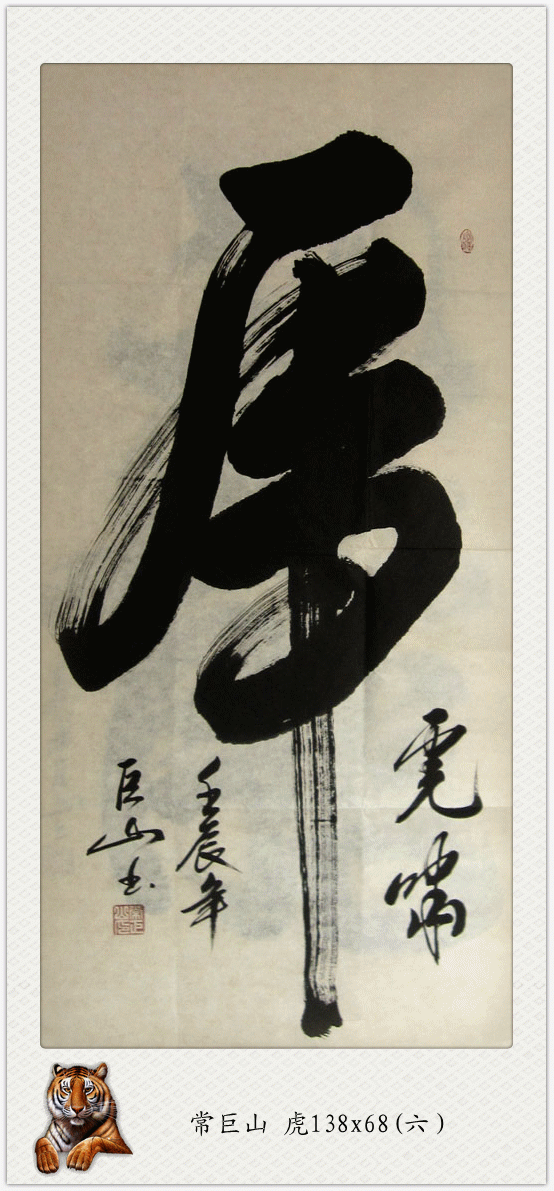 虎
虎啸
壬辰年
巨山书
常巨山 虎138x68(六)